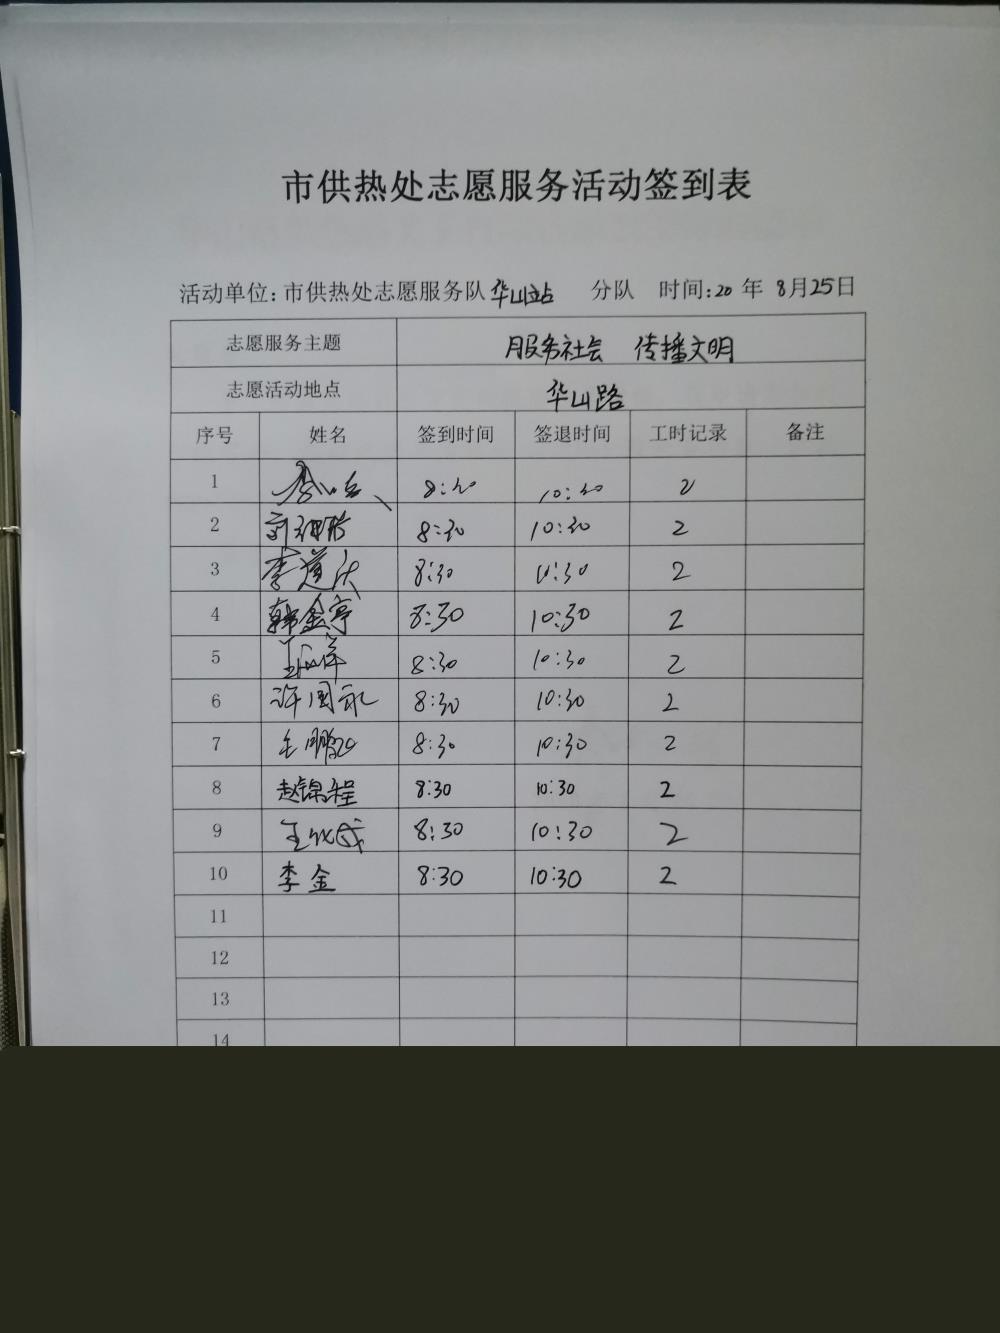 市供热处志愿服务活动签到表
活动单位:市供热处志愿服务队华山站 分队 时间:20年 8月25日
志愿服务主题 服务社会 传播文明
志愿活动地点 华山路
序号 姓名 签到时间 签退时间 工时记录 备注
1 8:30 10:30 2
2 8:30 10:30 2
3 李道 8:30 10:30 2
4 韩金亭 8:30 10:30 2
5 8:30 10:30 2
6 许国永 8:30 10:30 2
7 王鹏 8:30 10:30 2
8 赵锦程 8:30 10:30 2
9 王 成 8:30 10:30 2
10 李金 8:30 10:30 2
11
12
13
14